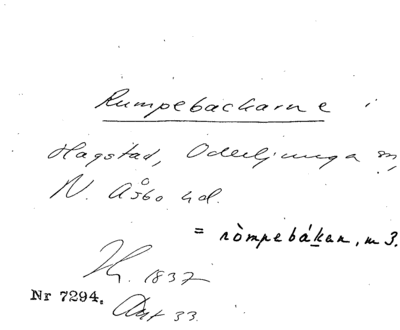 Rumpebackarne i
Hagstad, Oderljunga sn,
N. Åsbo hd.
= ròmpebákan, m 3.
1837
Nr 7294. Ant 33.